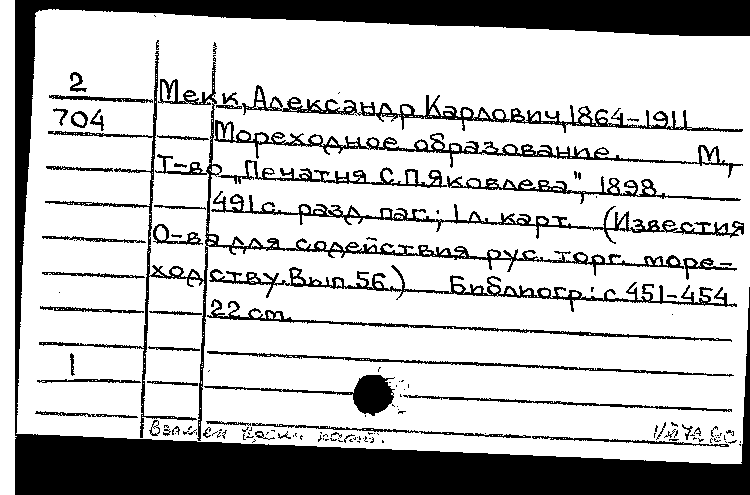 2
704
Мекк, Александр Карлович, 1864-1911
Мореходное образование. М.,
Т-во „Печатня С.П.Яковлева", 1898.
491 с. разд. паг.; 1 л. карт. (Известия
О-ва для содействия рус. торг. море-
ходству. Вып. 56.) Библиогр.: с 451-454
22 см.
1
Взамен